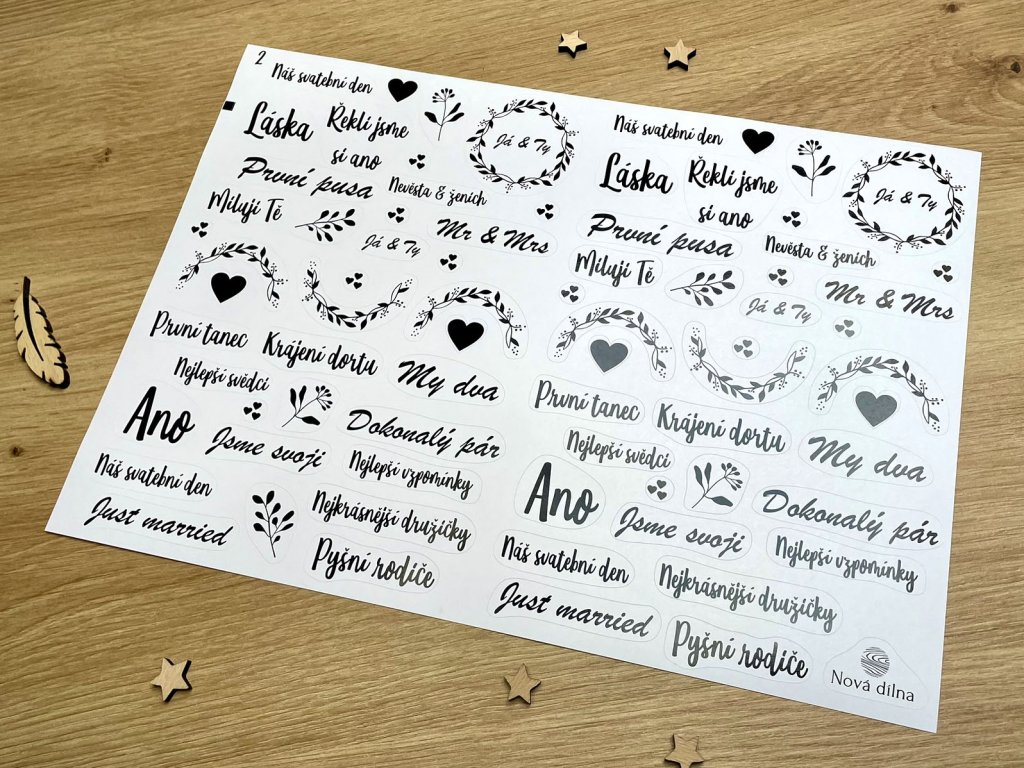 2
Náš svatební den
Láska
Řekli jsme
si ano
Já & Ty
První pusa
Nevěsta & ženich
Miluji Tě
Já & Ty
Mr & Mrs
První tanec
Krájení dortu
My dva
Nejlepší svědci
Ano
Jsme svoji
Dokonalý pár
Náš svatební den
Nejlepší vzpomínky
Just married
Nejkrásnější družičky
Pyšní rodiče
Náš svatební den
Láska
Řekli jsme
si ano
Já & Ty
První pusa
Nevěsta & ženich
Miluji Tě
Já & Ty
Mr & Mrs
První tanec
Krájení dortu
My dva
Nejlepší svědci
Ano
Jsme svoji
Dokonalý pár
Náš svatební den
Nejlepší vzpomínky
Just married
Nejkrásnější družičky
Pyšní rodiče
Nová dílna